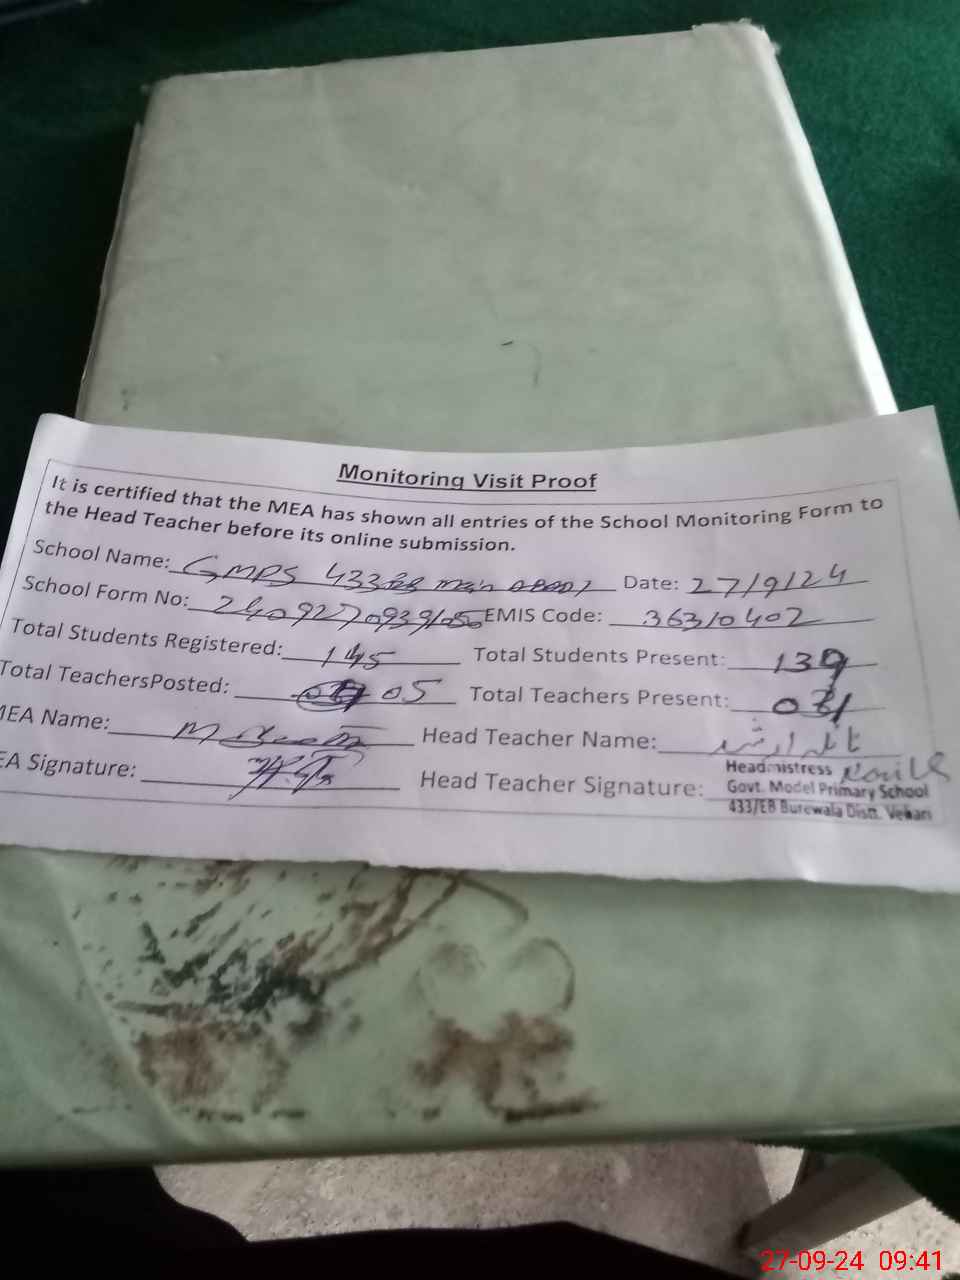 Monitoring Visit Proof
It is certified that the MEA has shown all entries of the School Monitoring Form to
the Head Teacher before its online submission.
School Name: GMPS 433 Date: 27/9/24
School Form No: EMIS Code: 36310402
Total Students Registered: 145 Total Students Present: 139
Total TeachersPosted: 05 Total Teachers Present:
MEA Name: M Head Teacher Name:
EA Signature: Head Teacher Signature:
Headmistress
Govt. Model Primary School
433/EB Burewala Distt. Vehari
27-09-24 09:41